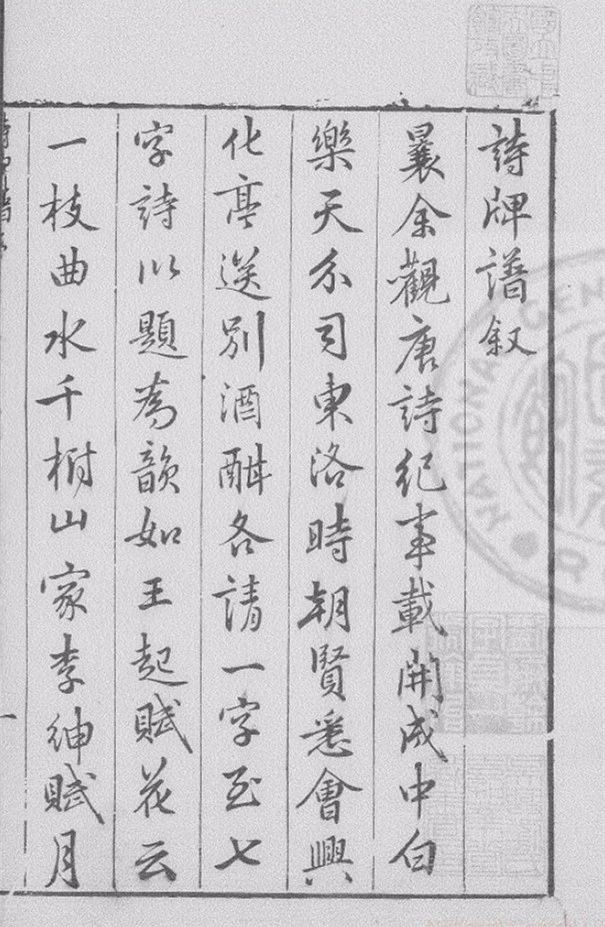 詩牌譜叙
曩余觀唐詩紀事載開成中白
樂天分司東洛時朝賢悉會興
化亭送別酒酣各請一字至七
字詩以題為韻如王起賦花云
一枝曲水千樹山家李紳賦月
一
NATIONAL CEN